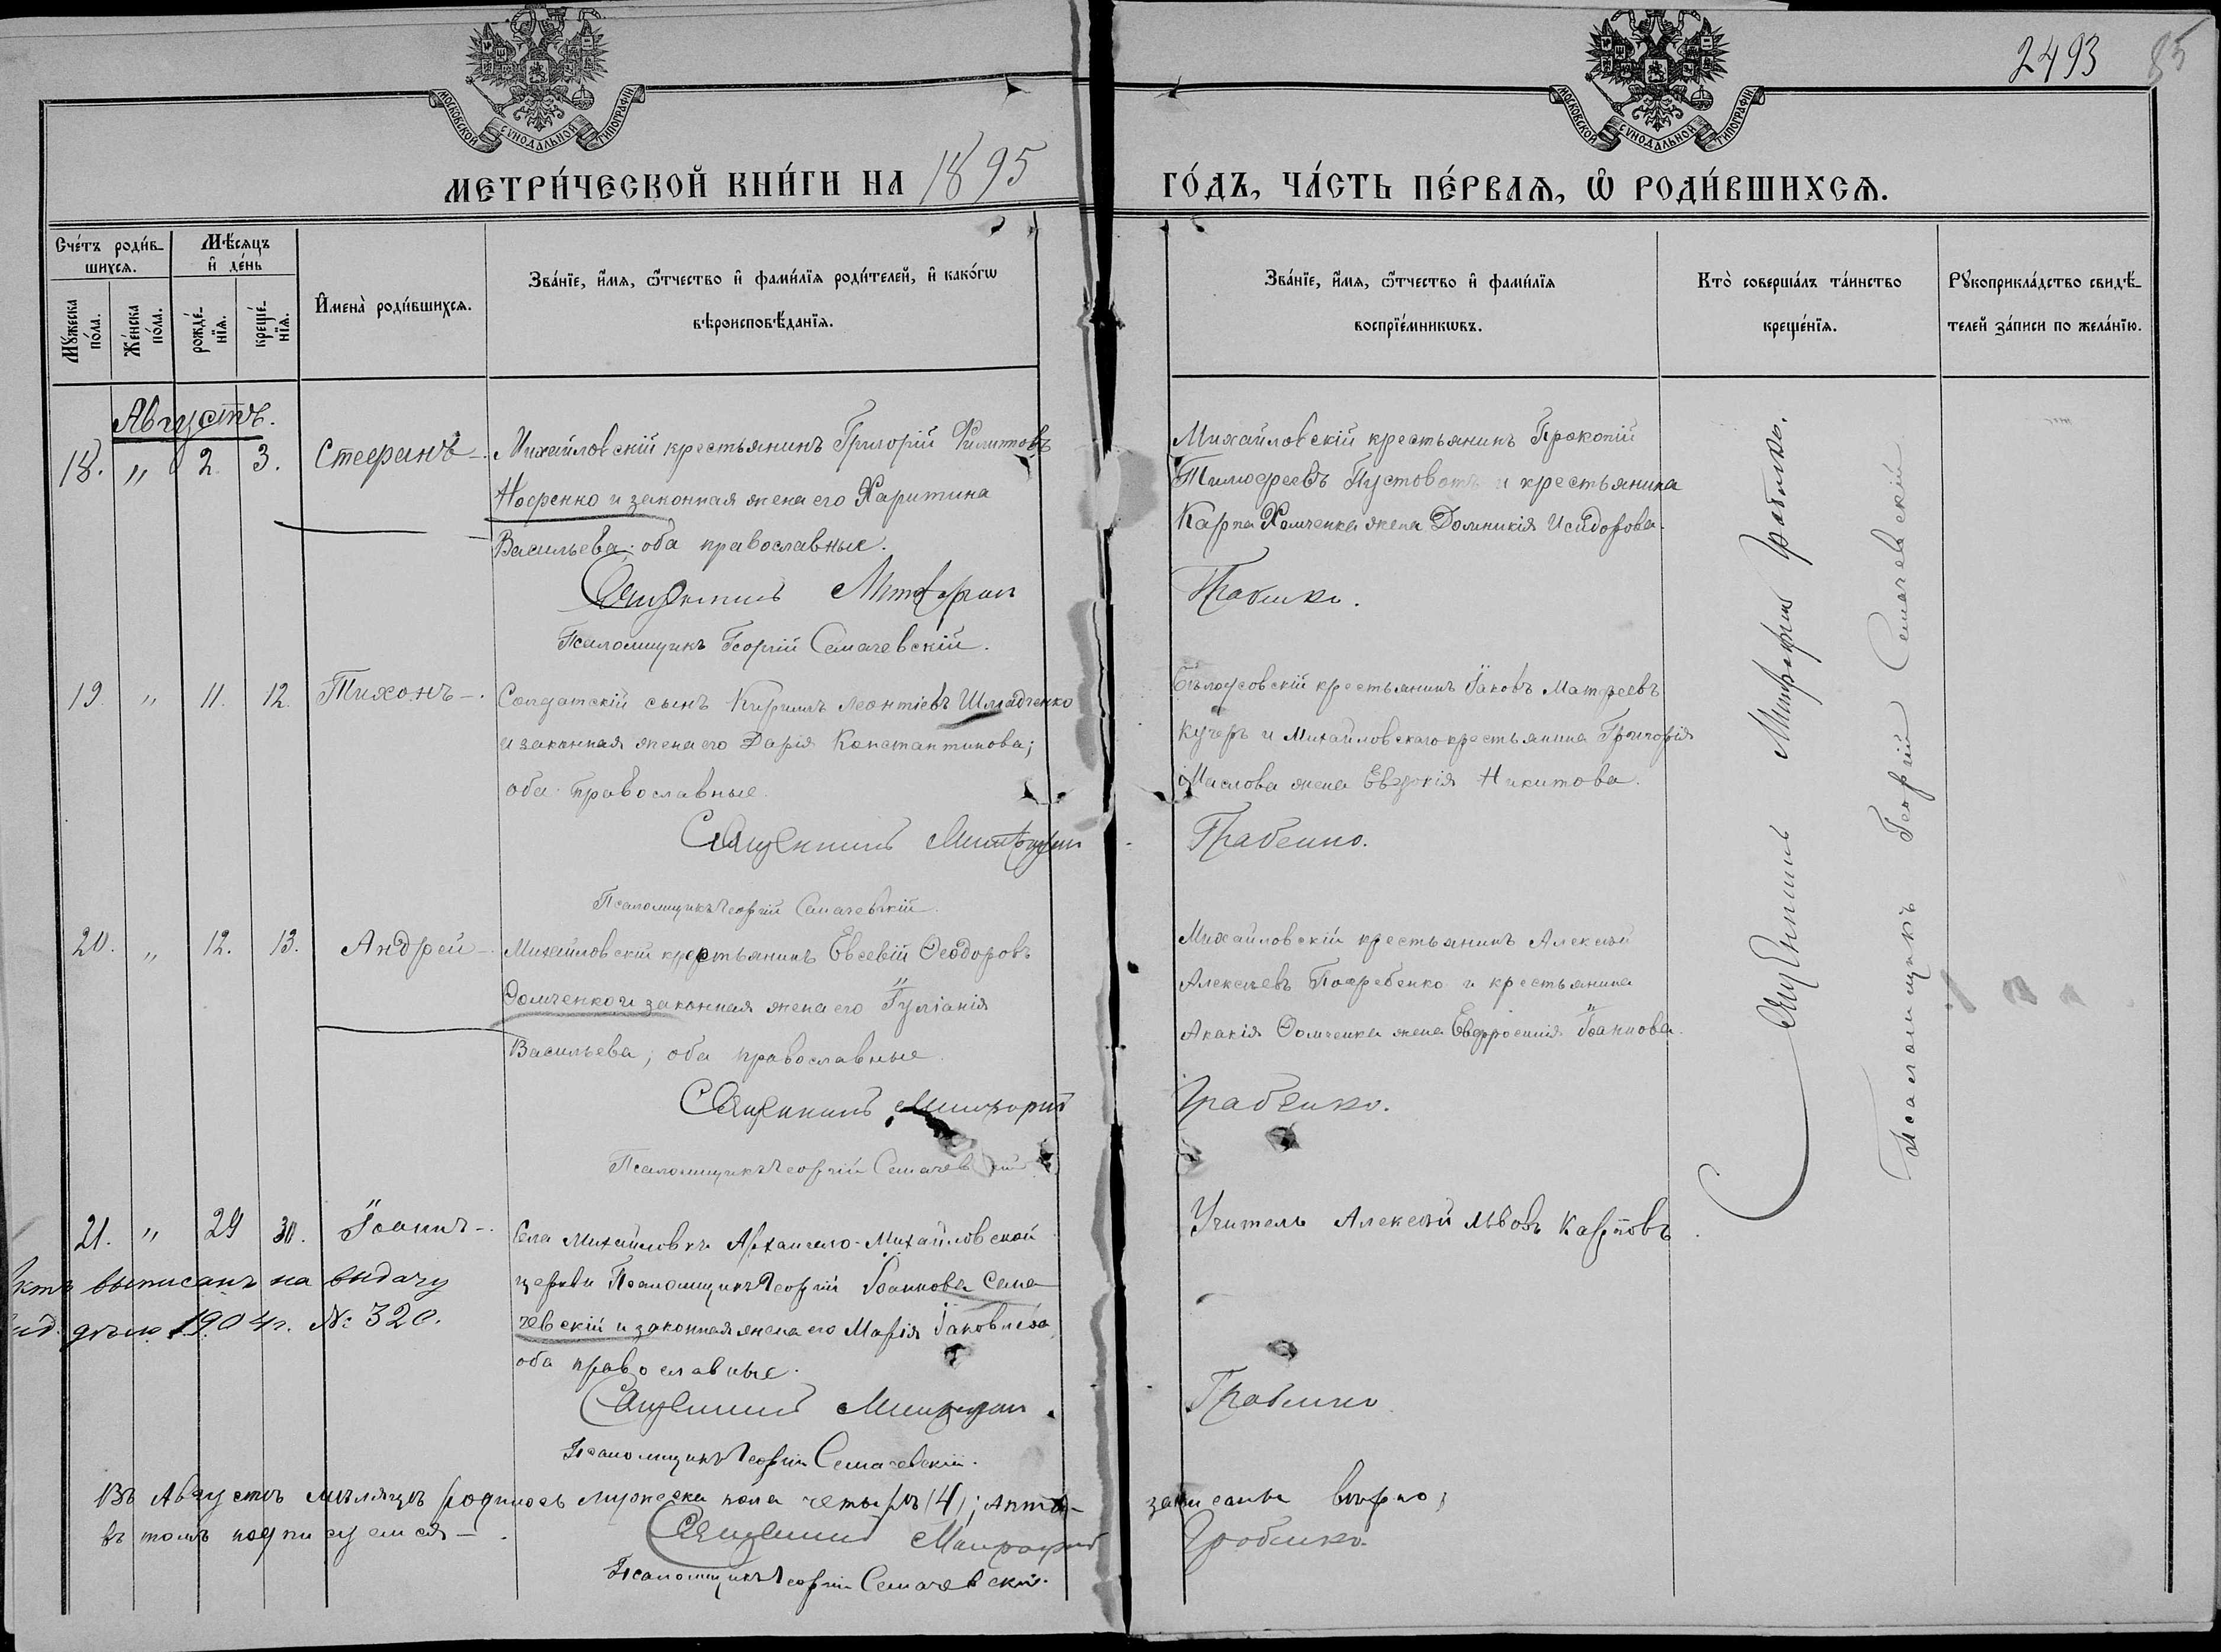 2493 85
МОСКОВСКОЙ СѴНОДАЛЬНОЙ ТИПОГРАФІИ
МОСКОВСКОЙ СѴНОДАЛЬНОЙ ТИПОГРАФІИ
МЕТРИ́ЧЕСКОЙ КНИ́ГИ НА 1895 ГО́ДЪ, ЧА́СТЬ ПЕ́РВАѦ, Ѡ РОДИ́ВШИХСѦ.
Сче́тъ роди́в-
шихсѧ.
Мѣ́сѧцъ
и҆ де́нь
Мꙋ́жеска
по́ла.
Же́нска
по́ла.
рожде́-
нїѧ.
креще́-
нїѧ.
И҆мена̀ роди́вшихсѧ.
Зва́нїе, и҆́мѧ, ѻ҆́тчество и҆ фами́лїѧ роди́телей, и҆ како́гѡ
вѣроисповѣ́данїѧ.
Зва́нїе, и҆́мѧ, ѻ҆́тчество и҆ фами́лїѧ
воспрїе́мникѡвъ.
Кто̀ соверша́лъ та́инство
креще́нїѧ.
Рꙋкоприкла́дство свидѣ́-
телей за́писи по жела́нїю.
Августъ.
18. " 2. 3. Стефанъ -. Михайловскій крестьянинъ Григорій Филиповъ
Нофенко и законная жена его Харитина
Васильева; оба православные.
Священникъ Митрофан Грабенко.
Псаломщикъ Георгій Семачевскій.
Михайловскій крестьянинъ Прокопій
Тимофеевъ Пустовотъ и крестьянина
Карпа Хомченка жена Домникія Исидорова.
19. " 11. 12. Тихонъ -. Солдатскій сынъ Кириллъ Леонтіевъ
и законная жена его Дарія Константинова;
оба православные.
Священникъ Митрофан Грабенко.
Псаломщикъ Георгій Семачевскій.
Бѣлоусовскій крестьянинъ Іаковъ Матфеевъ
Кучеръ и Михайловскаго крестьянина Григорія
Маслова жена Евдокія Никитова.
20. " 12. 13. Андрей -. Михайловскій крестьянинъ Евсевій Ѳеодоровъ
Ѳомченко и законная жена его Іуліанія
Васильева; оба православные.
Священникъ Митрофанъ Грабенко.
Псаломщикъ Георгій Семачевскій
Михайловскій крестьянинъ Алексѣй
Алексѣевъ Погребенко и крестьянина
Акакія Ѳомченка жена Евфросинія Іоаннова.
21. " 29 30. Іоаннъ -. Села Михайловки Архангело-Михайловской
церкви Псаломщикъ Георгій Іоанновъ Сема
чевскій и законная жена его Марія Іаковлева
оба православные.
Священникъ Митрофан Грабенко
Псаломщикъ Георгій Семачевскій.
Учитель Алексѣй Львовъ Карповъ.
выписанъ на выдачу
1904 г. № 320.
Священникъ Митрофанъ Грабенко.
Псаломщикъ Георгій Семачевскій
Въ Августѣ мѣсяцѣ родилось мужеска пола четыре (4); Акты записаны вѣрно,
въ томъ подписуемся -.
Священникъ Митрофанъ Грабенко.
Псаломщикъ Георгій Семачевскій.